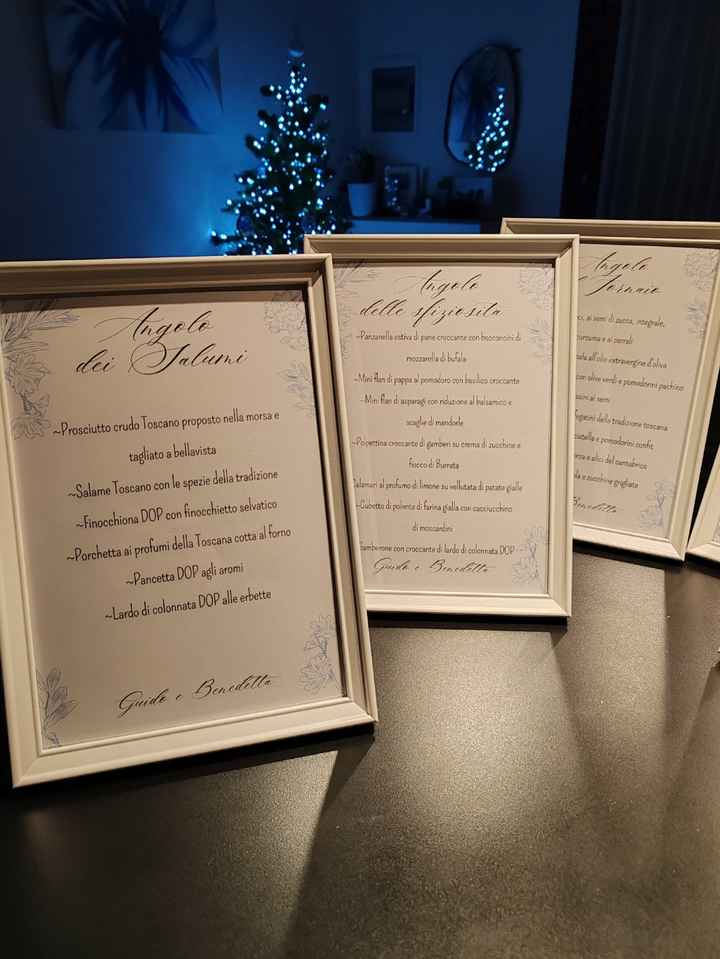 Angolo
dei Salumi
~Prosciutto crudo Toscano proposto nella morsa e
tagliato a bellavista
~Salame Toscano con le spezie della tradizione
~Finocchiona DOP con finocchietto selvatico
~Porchetta ai profumi della Toscana cotta al forno
~Pancetta DOP agli aromi
~Lardo di colonnata DOP alle erbette
Guido e Benedetta
Angolo
delle sfiziosita
~Panzanella estiva di pane croccante con bocconcini di
mozzarella di bufala
~Mini flan di pappa al pomodoro con basilico croccante
~Mini flan di asparagi con riduzione al balsamico e
scaglie di mandorle
~Polpettina croccante di gamberi su crema di zucchine e
fiocco di Burrata
Calamari al profumo di limone su vellutata di patate gialle
~Cubetto di polenta di farina gialla con cacciucchino
di moscardini
Gamberone con croccante di lardo di colonnata DOP
Guido e Benedetta
Angolo
Fornaio
ai semi di zucca, integrale,
curcuma e ai cereali
all'olio extravergine d'oliva
con olive verdi e pomodorini pachino
ai semi
fegatini della tradizione toscana
e pomodorini confit
e alici del cantabrico
e zucchine grigliate
Benedetta